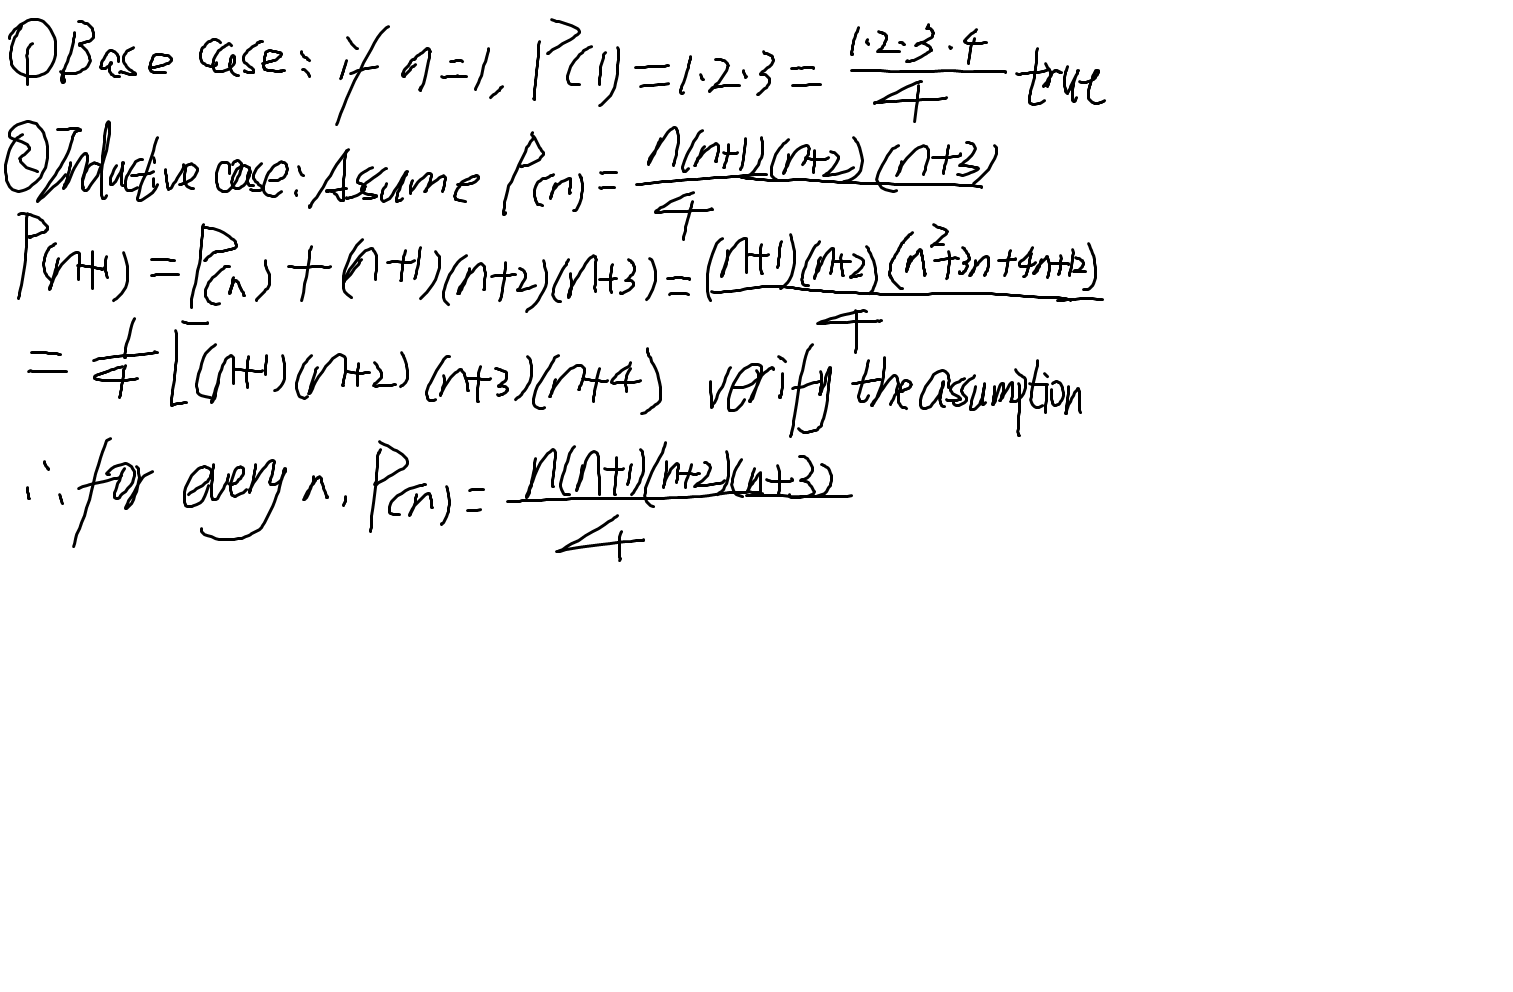 ① Base case: if n=1, P(1)=1·2·3=\frac{1·2·3·4}{4} true
② Inductive case: Assume P(n)=\frac{n(n+1)(n+2)(n+3)}{4}
P(n+1)=P(n)+(n+1)(n+2)(n+3)=\frac{(n+1)(n+2)(n²+3n+4n+12)}{4}
=\frac{1}{4}[(n+1)(n+2)(n+3)(n+4) verify the assumption
∴ for every n, P(n)=\frac{n(n+1)(n+2)(n+3)}{4}